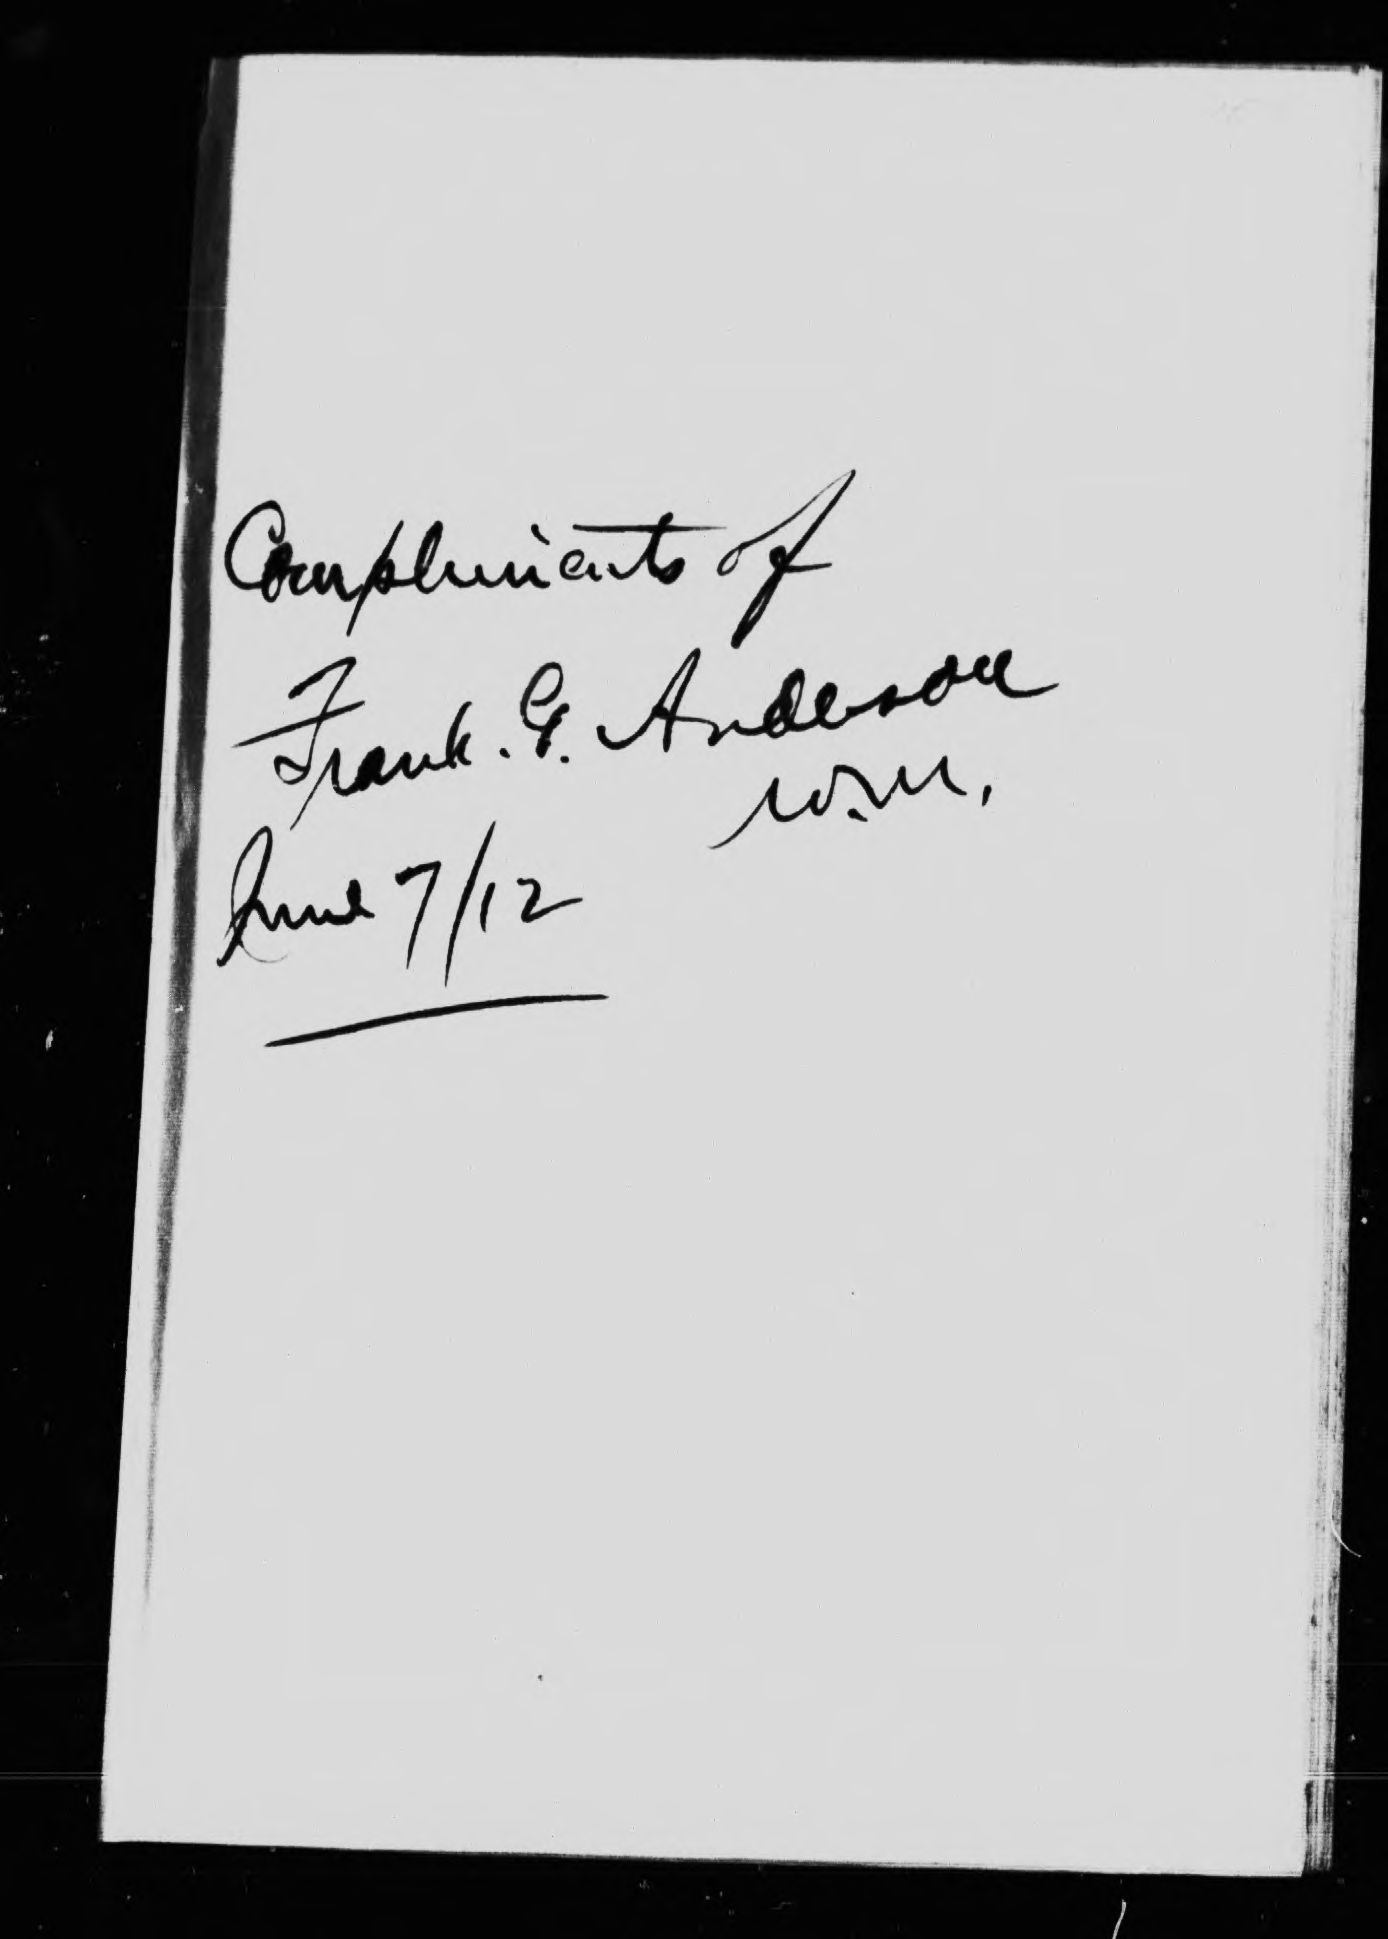 Compliments of
Frank. G. Anderson
W.M.
June 7/12